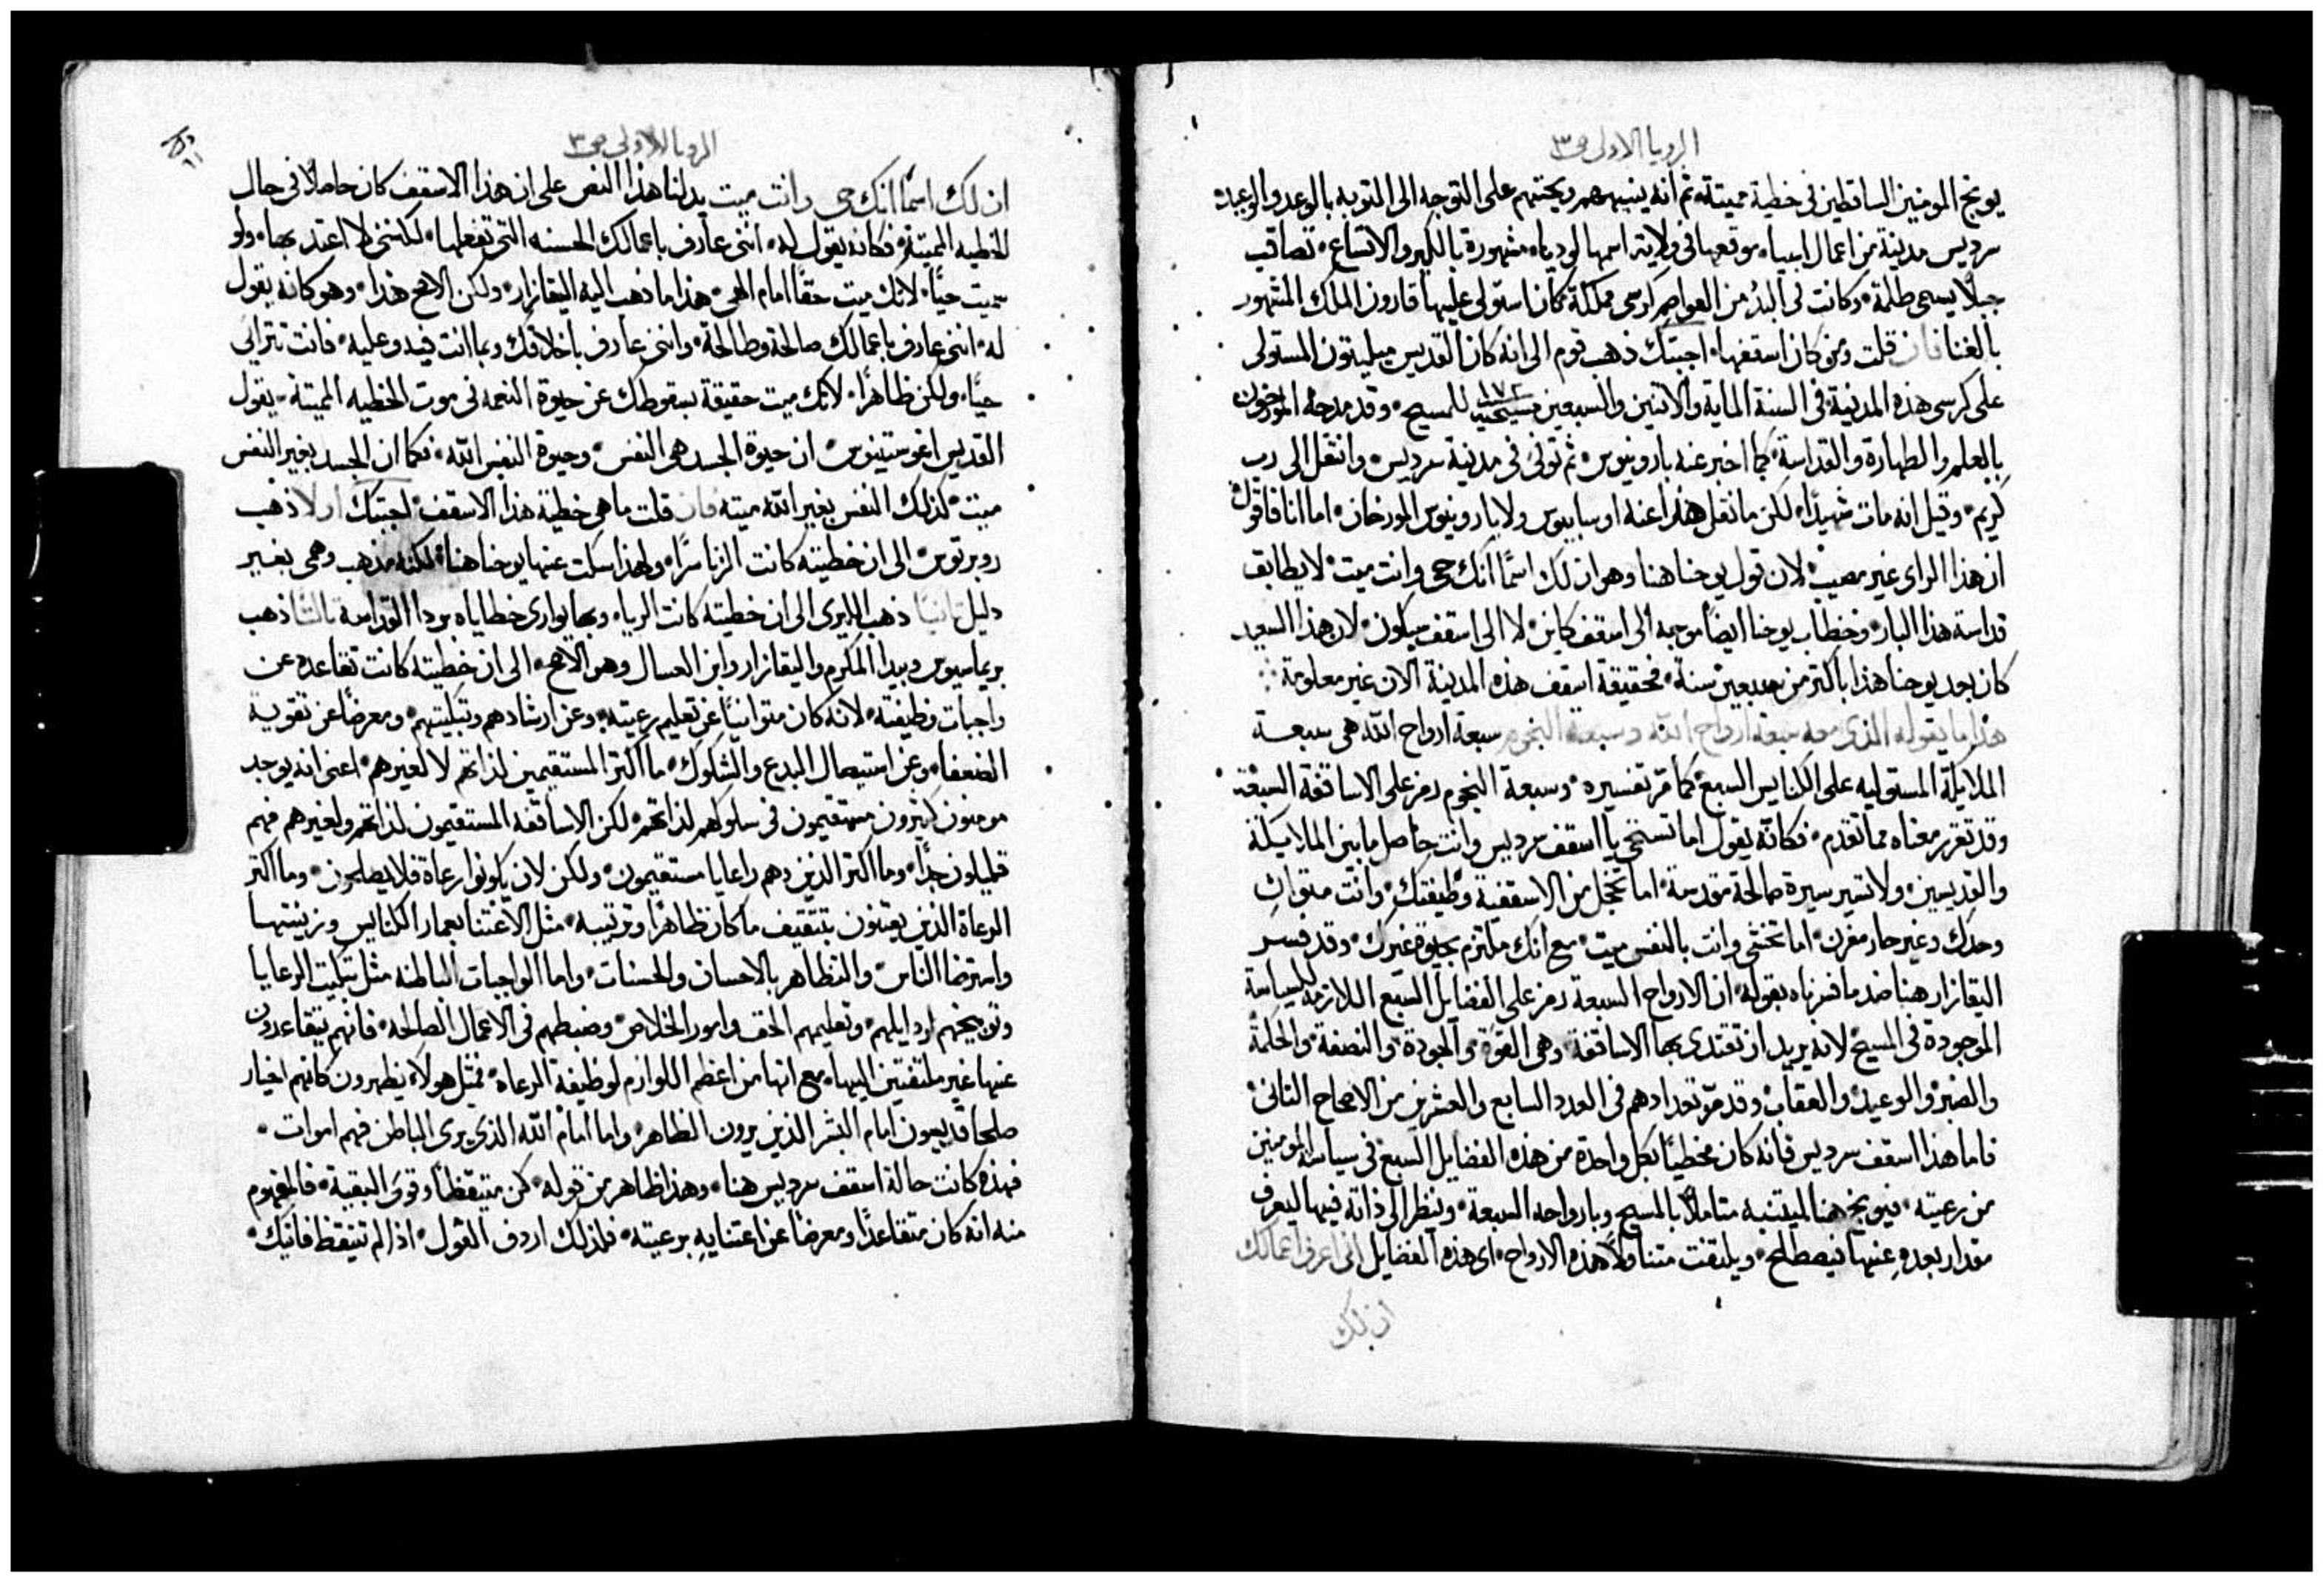 الرويا الاولى ص٣
يوبخ المومنين الساقطين في خطية مميتة، ثم انه ينبههم ويحثهم على التوجه الى التوبه بالوعد والوعيد
سرديس مدينة من اعمال اسيا، موقعها في ولاية اسمها لوديا، مشهورة بالكبر والاتساع، تصاقب
جبلًا يسمى طلمة، وكانت في البدء من العواصم كرسي مملكة كان استولى عليها قارون الملك المشهور
بالغنا فان قلت ومن كان اسقفها، اجبتك ذهب قوم الى انه كان القديس ميليتون المستولى
على كرسي هذه المدينة في السنة الماية والاثنين والسبعين ١٧٢ للمسيح، وقد مدحه المورخون
بالعلم والطهارة والقداسة، كما اخبر عنه بارونيوس، ثم توفى في مدينة سرديس، وانتقل الى رب
كريم، وقيل انه مات شهيدًا، لكن ما نقل هذا عنه اوسابيوس ولا بارونيوس المورخان، اما انا فاقول
ان هذا الراى غير مصيب، لان قول يوحنا هنا وهو ان لك اسمًا انك حى وانت ميت، لا يطابق
قداسة هذا البار، وخطاب يوحنا ايضًا موجه الى اسقف كاين، لا الى اسقف سيكون، لان هذا السعيد
كان بعد يوحنا هذا باكثر من سبعين سنة، فحقيقة اسقف هذه المدينة الان غير معلومة
هذا ما يقوله الذى معه سبعة ارواح الله وسبعة النجوم سبعة ارواح الله هى سبعة
الملايكة المستوليه على الكنايس السبع، كما مر تفسيره، وسبعة النجوم رمز على الاساقفة السبعة
وقد تقرر معناه مما تقدم، فكانه يقول اما تستحى يا اسقف سرديس وانت حاصل ما بين الملايكة
والقديسين، ولا تسير سيرة صالحة مقدسة، اما تخجل من الاسقفية وظيفتك، وانت متوانٍ
وحدك وغير حار مغرن، اما تختشى وانت بالنفس ميت، مع انك ملتزم بحيوة غيرك، وقد فسر
اليقازار هنا ضد ما فسرناه بقوله، ان الارواح السبعة رمز على الفضايل السبع اللازمة للسياسة
الموجودة في المسيح لانه يريد ان تقتدى بها الاساقفة، وهى القوة، والجودة، والنصفة، والحكمة
والصبر، والوعيد، والعقاب، وقد مر تعدادهم في العدد السابع والعشرين من الاصحاح الثانى
فاما هذا اسقف سرديس فانه كان مخطيًا بكل واحدة من هذه الفضايل السبع في سياسة المومنين
من رعيته، فيوبخ هنا ليتنبه متاملًا بالمسيح وبارواحه السبعة، وينظر الى ذاته فيها ليعرف
مقدار بعده عنها فيصطلح، ويلتفت متناولًا هذه الارواح، اى هذه الفضايل انى اعرف اعمالك
ان لك
الرويا الاولى ص٣
ان لك اسمًا انك حى وانت ميت يدلنا هذا النص على ان هذا الاسقف كان حاملًا في حال
الخطيه المميتة، فكانه يقول له، اننى عارف باعمالك الحسنه التى تفعلها، لكننى لا اعتد بها، ولو
سميت حيًا، لانك ميت حقًا امام الهى، هذا ما ذهب اليه اليقازار، ولكن الاصح هذا، وهو كانه يقول
له، اننى عارف باعمالك صالحة وطالحة، واننى عارف باخلاقك وبما انت فيه وعليه، فانت تترااى
حيًا، ولكن ظاهرًا، لانك ميت حقيقة بسقوطك عن حيوة النعمه في موت الخطيه المميتة، يقول
القديس اغوستينوس، ان حيوة الجسد هى النفس، وحيوة النفس الله، فكما ان الجسد بغير النفس
ميت، كذلك النفس بغير الله ميته فان قلت ما هى خطية هذا الاسقف، اجبتك اولا ذهب
روبرتوس الى ان خطيته كانت الزنا سرًا، ولهذا سكت عنها يوحنا هنا، لكنه مذهب وهمى بغير
دليل ثانيًا ذهب الى ان خطيته كانت الريا، وبها يوارى خطاياه بردا القداسة ثالثًا ذهب
بريماسيوس وبيدا المكرم واليقازار وابن العسال وهو الاصح، الى ان خطيته كانت تقاعده عن
واجبات وظيفته، لانه كان متوانيًا عن تعليم رعيته، وعن ارشادهم وتبكيتهم، ومعرضًا عن تقوية
الضعفا، وعن استيصال البدع والشكوك، ما اكثر المستقيمين لذاتهم لا لغيرهم، اعنى انه يوجد
مومنون كثيرون مستقيمون في سلوكهم لذاتهم، لكن الاساقفه المستقيمون لذاتهم ولغيرهم فهم
قليلون جدًا، وما اكثر الذين وهم رعايا مستقيمون، ولكن لان يكونوا رعاة فلا يصلحون، وما اكثر
الرعاة الذين يعتنون بتثقيف ما كان ظاهرًا وترتيبه، مثل الاعتنا بعمار الكنايس وزينتها
واسترضا الناس، والتظاهر بالاحسان والحسنات، واما الواجبات الباطنه مثل تبكيت الرعايا
وتوبيخهم لرذايلهم، وتعليمهم الحق وامور الخلاص، وضبطهم في الاعمال الصالحه، فانهم يتقاعدون
عنها غير ملتفتين اليها، مع انها من اعظم اللوازم لوظيفة الرعاه، فمثل هولاء يظهرون كانهم اخيار
صلحا قديسون امام البشر الذين يرون الظاهر، واما امام الله الذى يرى الباطن فهم اموات
فهذه كانت حالة اسقف سرديس هنا، وهذا ظاهر من قوله، كن متيقظًا وقوى البقية، فالمفهوم
منه انه كان متقاعدًا ومعرضًا عن اعتنايه برعيته، فلذلك اردف القول، اذا لم تتيقظ فاتيك